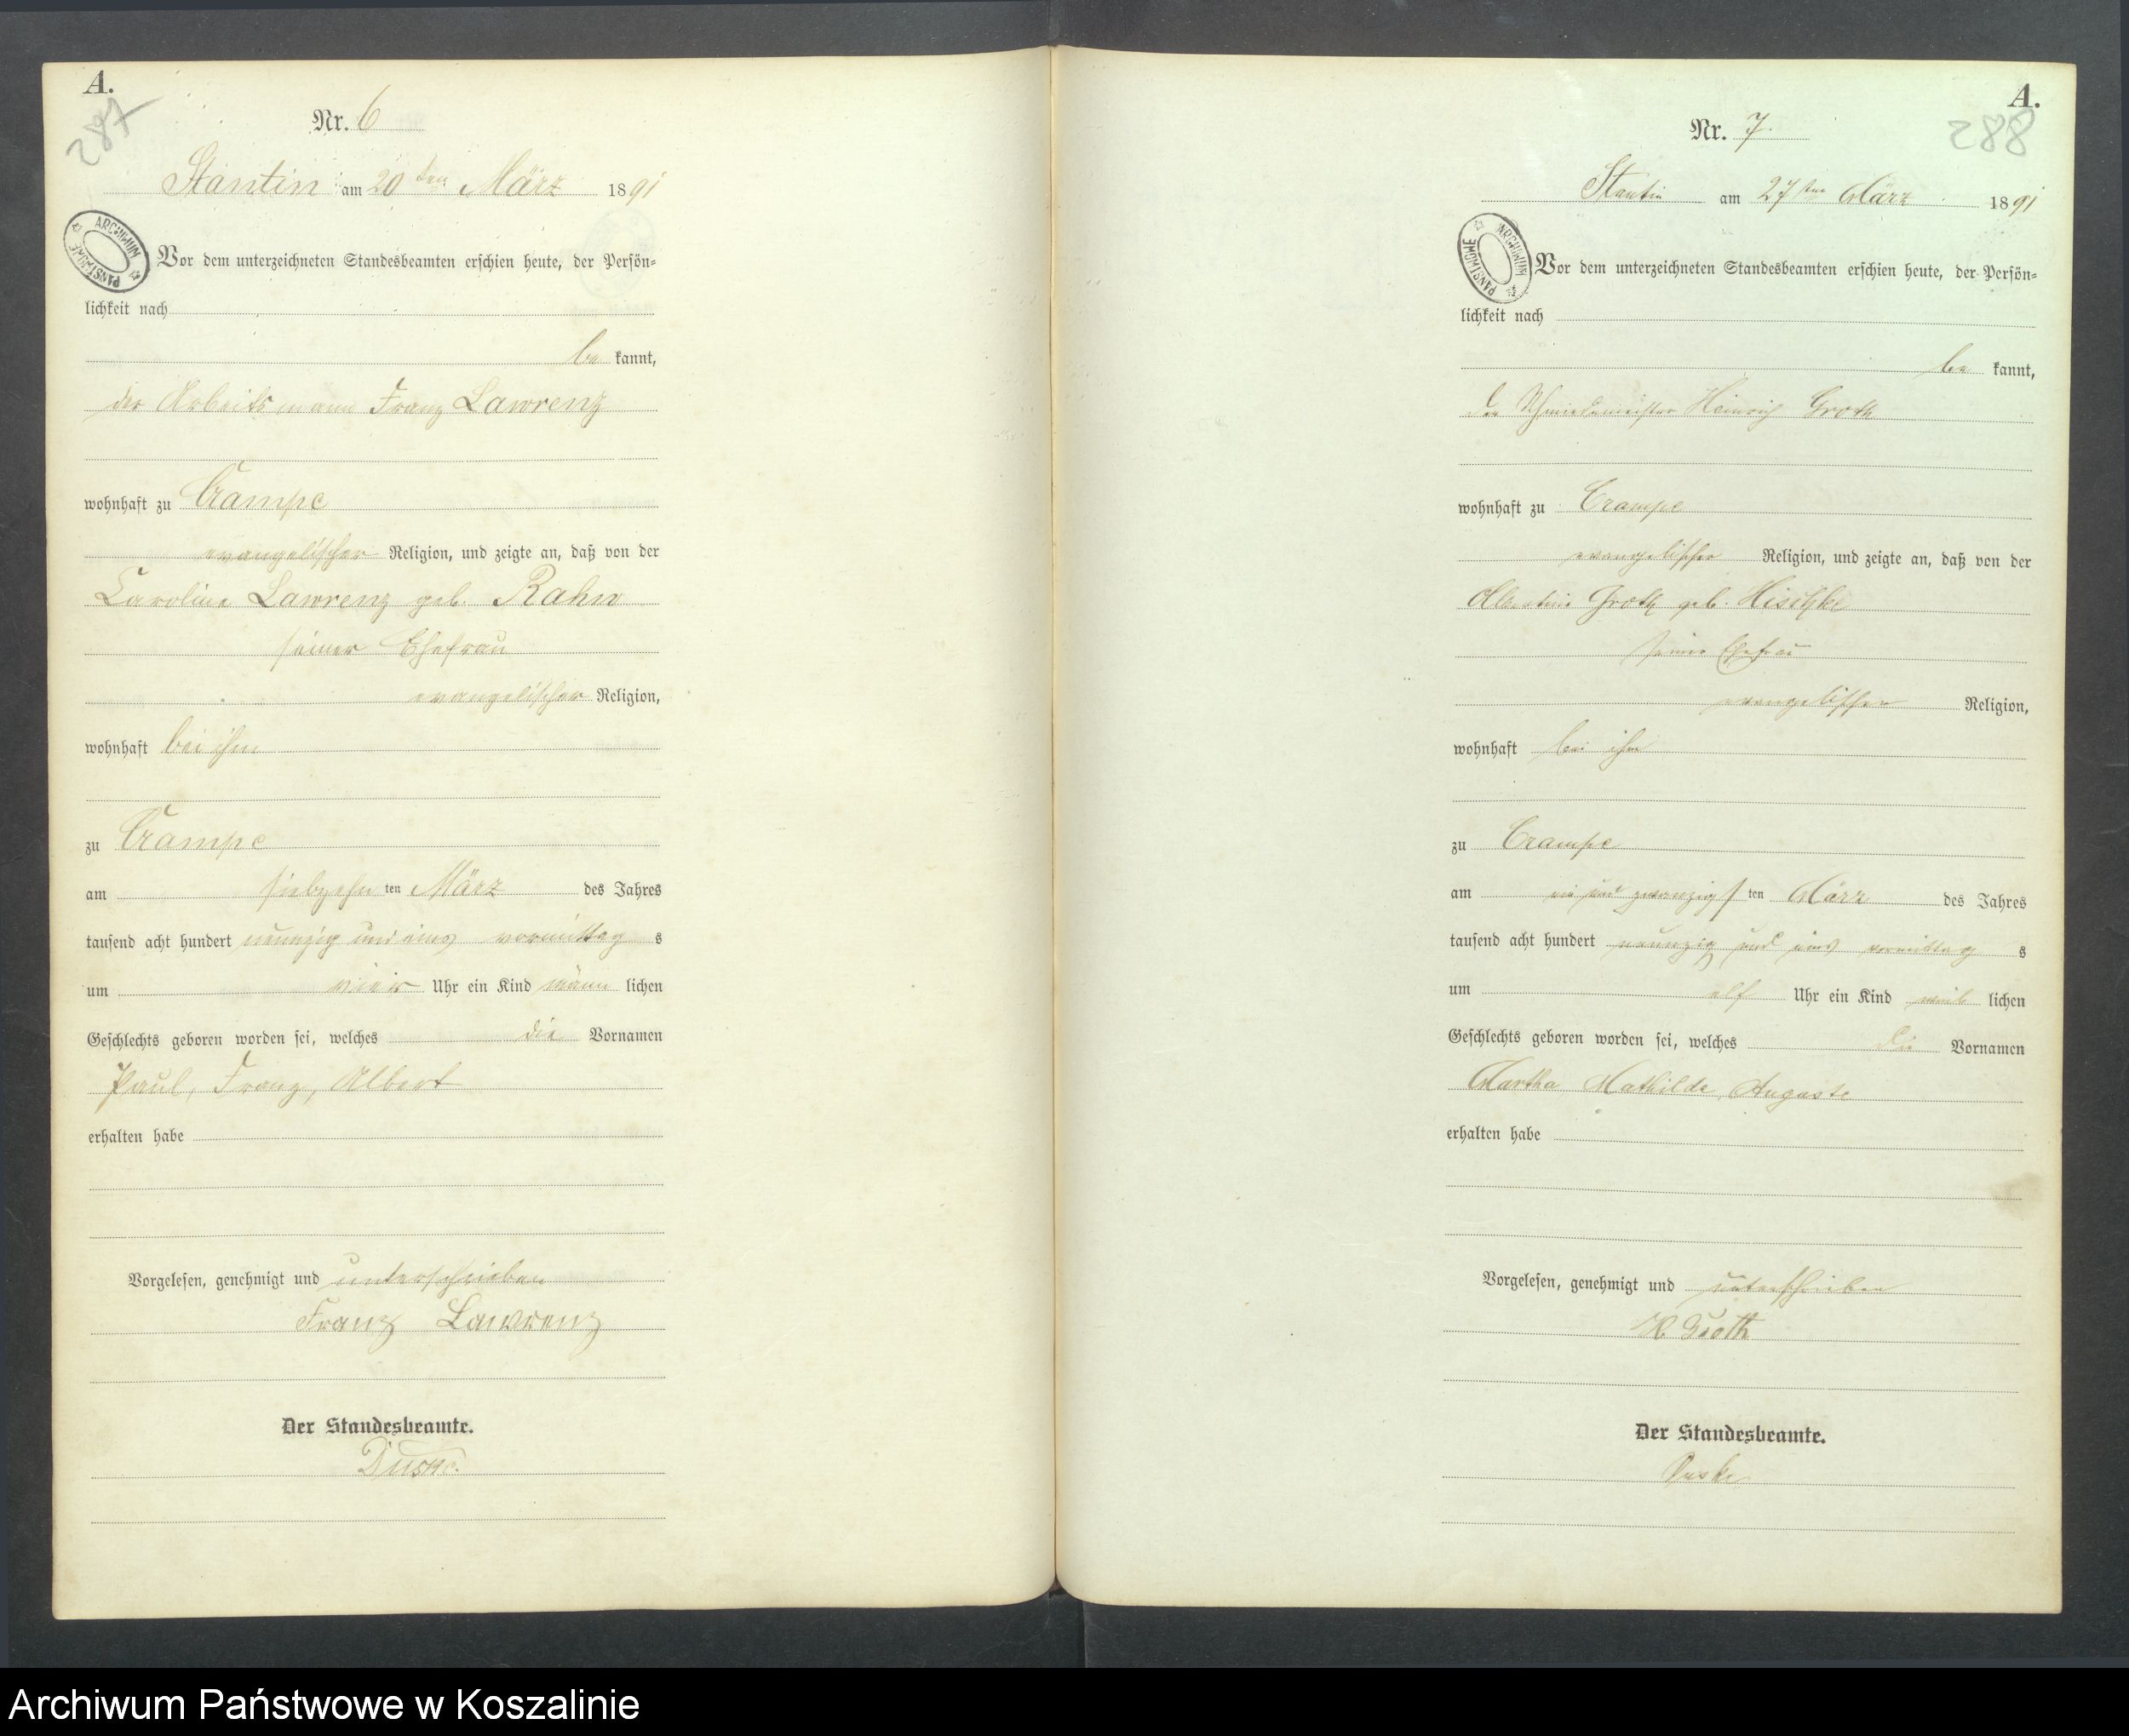 A.
287
Nr. 6
Stantin am 20ten März 1891
ARCHIWUM PAŃSTWOWE
Vor dem unterzeichneten Standesbeamten erschien heute, der Persön-
lichkeit nach
be kannt,
der Arbeitsmann Franz Lawrenz
wohnhaft zu Crampe
evangelischer Religion, und zeigte an, daß von der
Caroline Lawrenz geb. Rahn
seiner Ehefrau
evangelischer Religion,
wohnhaft bei ihm
zu Crampe
am siebzehn ten März des Jahres
tausend acht hundert neunzig und eins vormittag s
um vier Uhr ein Kind männ lichen
Geschlechts geboren worden sei, welches die Vornamen
Paul, Franz, Albert
erhalten habe
Vorgelesen, genehmigt und unterschrieben
Franz Lawrenz
Der Standesbeamte.
A.
288
Nr. 7.
Stantin am 27ten März 1891
ARCHIWUM PAŃSTWOWE
Vor dem unterzeichneten Standesbeamten erschien heute, der Persön-
lichkeit nach
be kannt,
der Schmiedemeister Heinrich Groth
wohnhaft zu Crampe
evangelischer Religion, und zeigte an, daß von der
Albertine Groth geb. Hischke
seiner Ehefrau
evangelischer Religion,
wohnhaft bei ihm
zu Crampe
am ein und zwanzigs ten März des Jahres
tausend acht hundert neunzig und eins vormittag s
um elf Uhr ein Kind weib lichen
Geschlechts geboren worden sei, welches die Vornamen
Martha Mathilde Auguste
erhalten habe
Vorgelesen, genehmigt und unterschrieben
H Groth
Der Standesbeamte.
Archiwum Państwowe w Koszalinie